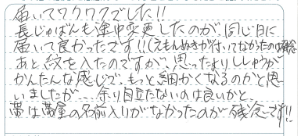 届いてワクワクでした!!
長じゅばんも途中変更したのが、同じ日に
届いて良かったです!!(えもんぬきが付いてなかったのは残念
あと、紋を入れたのですが、思ったよりししゅうが
かんたんな感じで、もっと細かくなるのかと思
いましたが… 余り目立たないのは良いかと…
帯は黄金の名前入りがなかったのが残念です!!